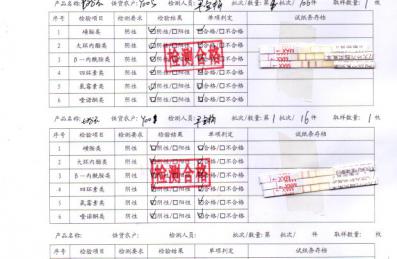 产品名称: 供货农户: Y005 检测人员: 批次/数量: 第 批次/ 件 取样数量: 1 枚
序号 检验项目 检测要求 检验结果 单项判定 试纸条存档
1 磺胺类 阴性 ☑阴性/□阳性 ☑合格/□不合格
2 大环内酯类 阴性 ☑阴性/□阳性 ☑合格/□不合格
3 β-内酰胺类 阴性 ☑阴性/□阳性 ☑合格/□不合格
4 四环素类 阴性 ☑阴性/□阳性 ☑合格/□不合格
5 氟霉素类 阴性 ☑阴性/□阳性 ☑合格/□不合格
6 喹诺酮类 阴性 ☑阴性/□阳性 ☑合格/□不合格
检测合格
产品名称: 供货农户: 检测人员: 批次/数量: 第 1 批次/ 16 件 取样数量: 1 枚
序号 检验项目 检测要求 检验结果 单项判定 试纸条存档
1 磺胺类 阴性 ☑阴性/□阳性 ☑合格/□不合格
2 大环内酯类 阴性 ☑阴性/□阳性 ☑合格/□不合格
3 β-内酰胺类 阴性 ☑阴性/□阳性 ☑合格/□不合格
4 四环素类 阴性 ☑阴性/□阳性 ☑合格/□不合格
5 氟霉素类 阴性 ☑阴性/□阳性 ☑合格/□不合格
6 喹诺酮类 阴性 ☑阴性/□阳性 ☑合格/□不合格
检测合格
产品名称: 供货农户: 检测人员: 批次/数量: 第 批次/ 件 取样数量: 枚
序号 检验项目 检测要求 检验结果 单项判定 试纸条存档
1 磺胺类 阴性 □阴性/□阳性 □合格/□不合格